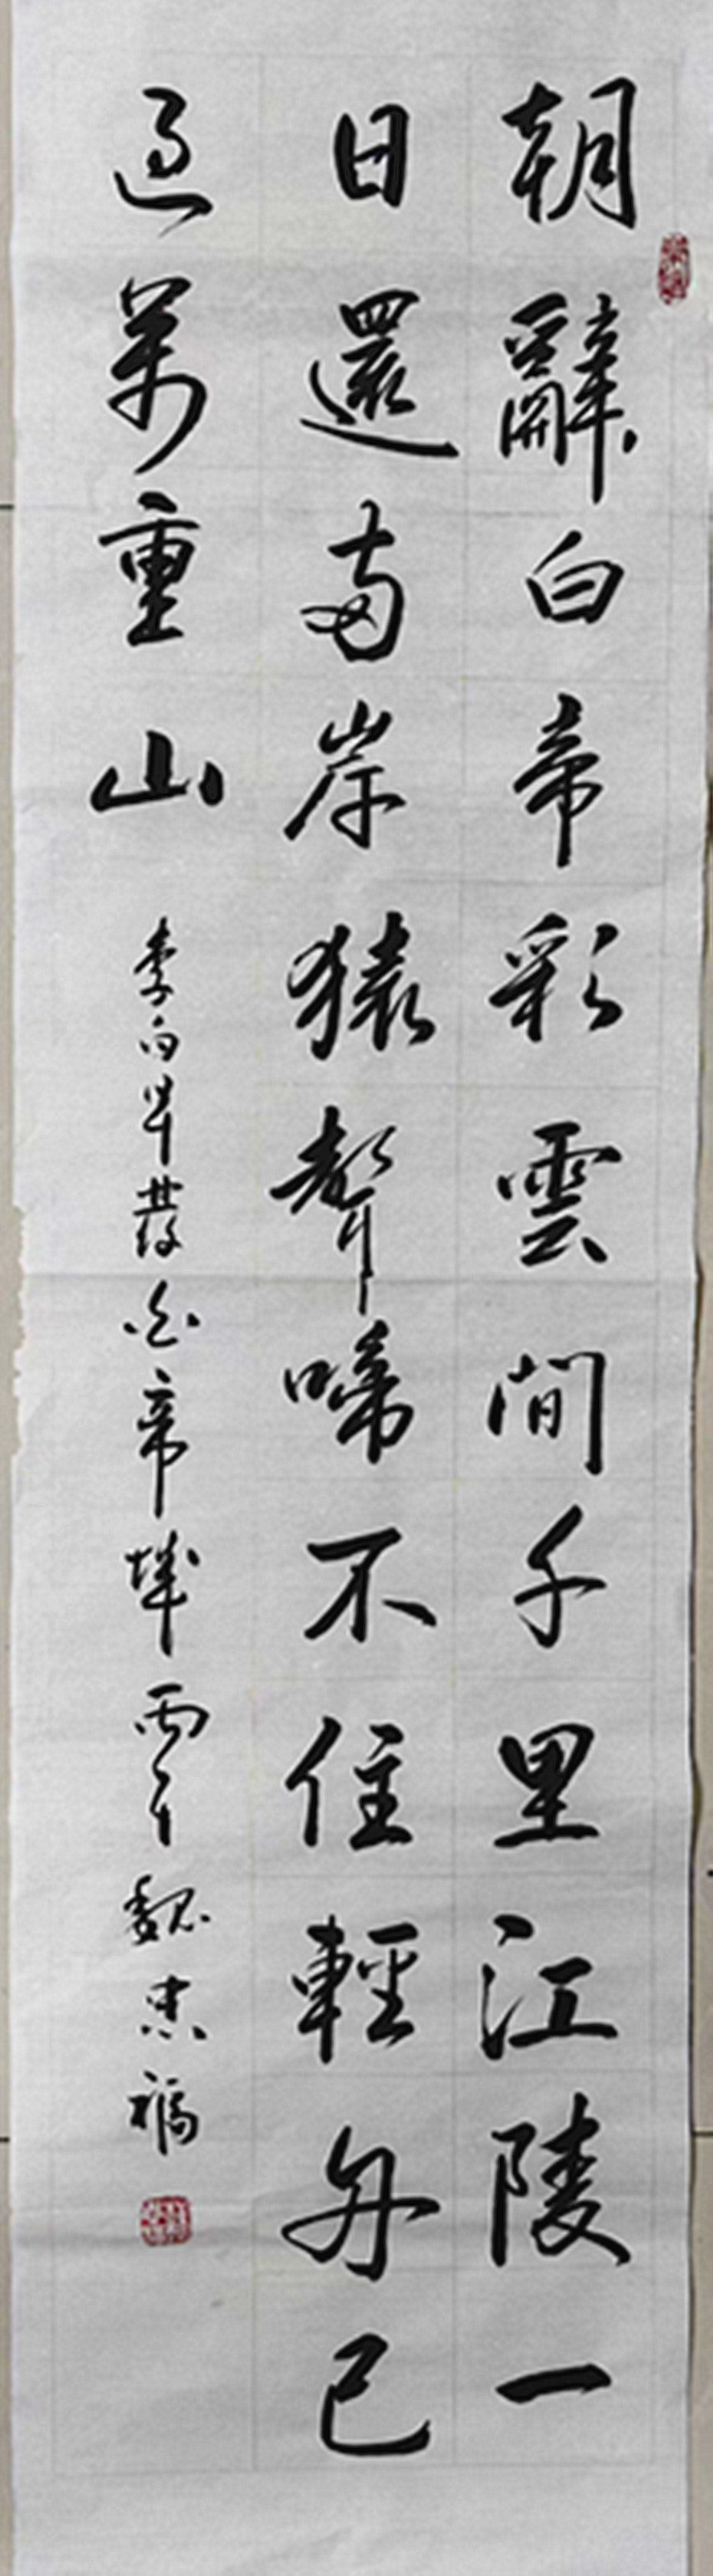 朝辭白帝彩雲間千里江陵一
日還兩岸猿聲啼不住輕舟已
過萬重山 李白早發白帝城 丙午 魏忠福